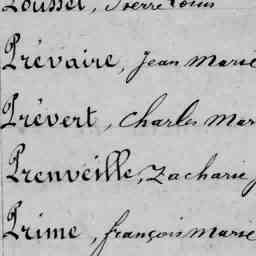 Pousset, Pierre Louis
Prévaire, Jean Marie
Prévert, Charles Mar
Prenveille, Zacharie
Prime, françois marie